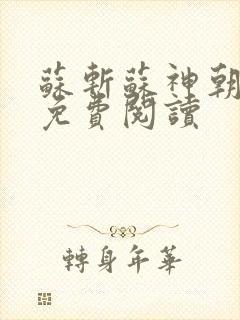 蘇斬蘇神朝
免費閱讀
轉身年華